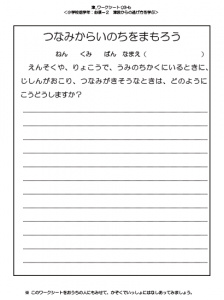 ＜小学校低学年：台本－２　津波からの逃げ方を学ぶ＞
つなみからいのちをまもろう
ねん　くみ　ばん　なまえ（　　　　　　）
えんそくや、りょこうで、うみのちかくにいるときに、
じしんがおこり、つなみがきそうなときは、どのように
こうどうしますか？
※ このワークシートをおうちの人にもみせて、かぞくでいっしょにはなしあってみましょう。